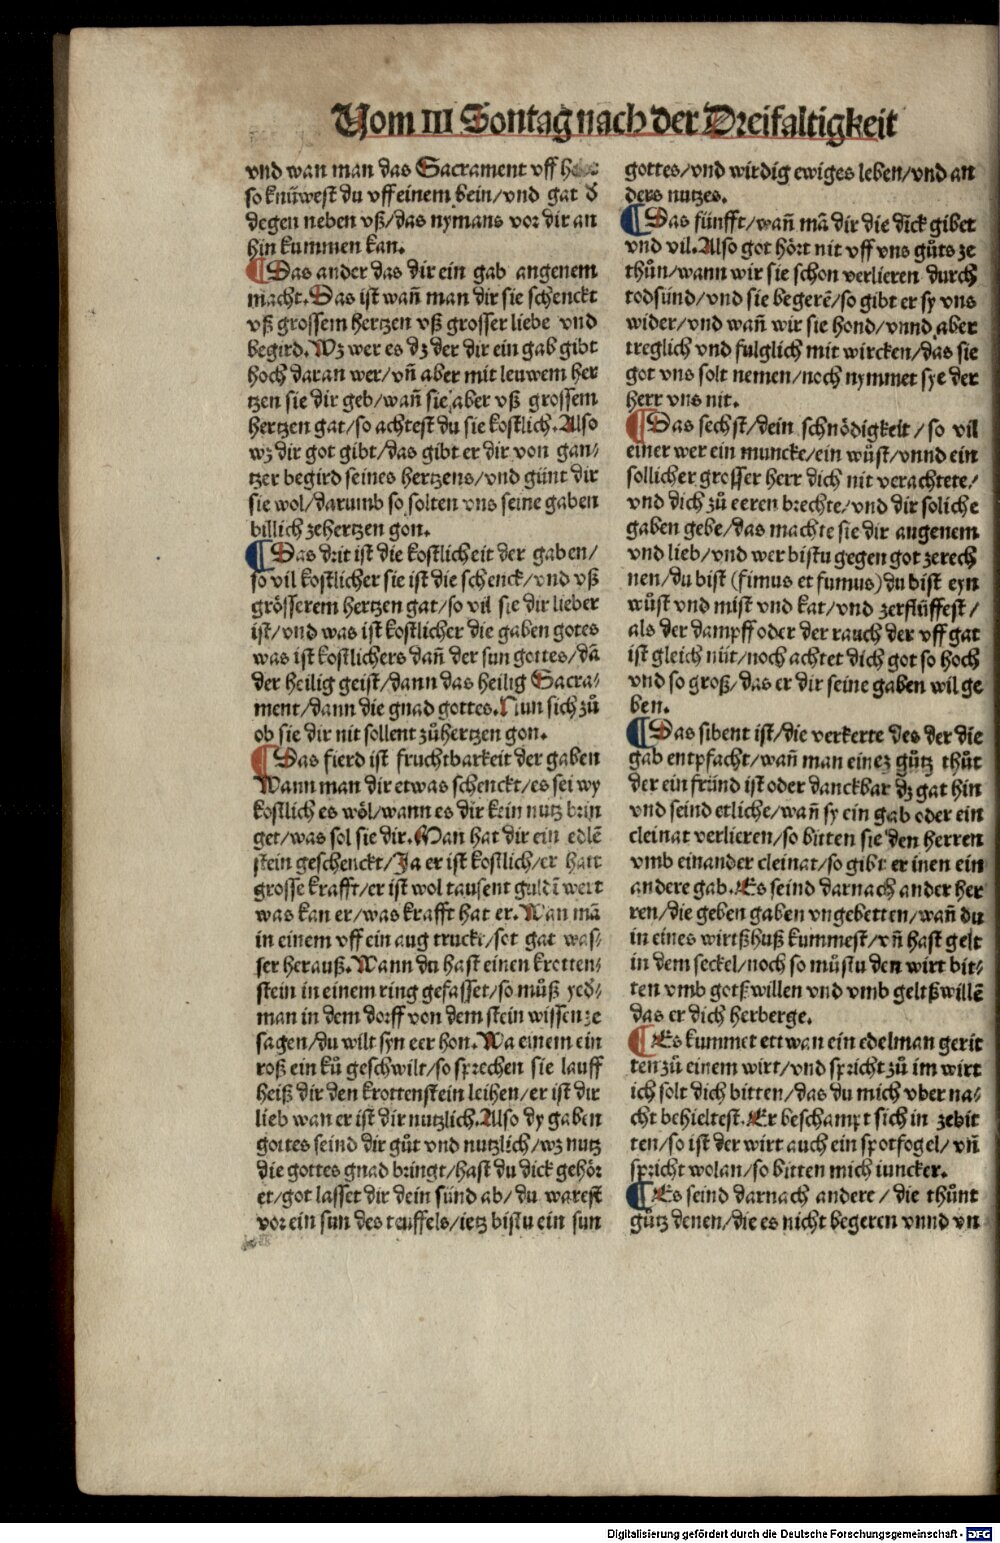 Vom III Sontag nach der Dreifaltigkeit
vnd wan man das Sacrament vff
so knüwest du vff einem bein/vnd gat d̕
degen neben vß/das nymans vor dir an
hin kummen kan.
¶Das ander das dir ein gab angenem
macht. Das ist wañ man dir sie schenckt
vß grossem hertzen vß grosser liebe vnd
begird. Wz wer es dz der dir ein gab gibt
hoch daran wer/vñ aber mit leuwem her
tzen sie dir geb/wañ sie aber vß grossem
hertzen gat/so achtest du sie kostlich. Also
wz dir got gibt/das gibt er dir von gan/
tzer begird seines hertzens/vnd günt dir
sie wol/darumb so solten vns seine gaben
billich zehertzen gon.
¶Das drit ist die kostlicheit der gaben/
so vil kostlicher sie ist die schenck/vnd vß
grösserem hertzen gat/so vil sie dir lieber
ist/vnd was ist kostlicher die gaben gotes
was ist kostlichers dañ der sun gottes/dā
der heilig geist/dann das heilig Sacra/
ment/dann die gnad gottes. Nun sich zů
ob sie dir nit sollent zůhertzen gon.
¶Das fierd ist fruchtbarkeit der gaben
Wann man dir etwas schenckt/es sei wy
kostlich es wöl/wann es dir kein nutz brin
get/was sol sie dir. Man hat dir ein edlē
stein geschenckt/Ja er ist kostlich/er hatt
grosse krafft/er ist wol tausent guldī wert
was kan er/was krafft hat er. Wan mā
in einem vff ein aug truckt/sot gat was/
ser herauß. Wann du hast einen krotten/
stein in einem ring gefasset/so můß yed̕/
man in dem dorff von dem stein wissen ze
sagen/du wilt syn eer hon. Wa einem ein
roß ein ků geschwilt/so sprechen sie lauff
heiß dir den krottenstein leihen/er ist dir
lieb wan er ist dir nutzlich. Also dy gaben
gottes seind dir gůt vnd nutzlich/wz nutz
die gottes gnad bringt/hast du dick gehör
et/got lasset dir dein sünd ab/du warest
vor ein sun des teuffels/ietz bistu ein sun
gottes/vnd wirdig ewiges leben/vnd an
ders nutzes.
¶Das fünfft/wañ mā dir die dick gibet
vnd vil. Also got hört nit vff vns gůts ze
thůn/wann wir sie schon verlieren durch
todsünd/vnd sie begerē/so gibt er sy vns
wider/vnd wañ wir sie hond/vnnd aber
treglich vnd fulglich mit wircken/das sie
got vns solt nemen/noch nymmet sye der
herr vns nit.
¶Das sechst/dein schnödigkeit/so vil
einer wer ein muncke/ein wůst/vnnd ein
sollicher grosser herr dich nit verachtete/
vnd dich zů eeren brechte/vnd dir soliche
gaben gebe/das machte sie dir angenem
vnd lieb/vnd wer bistu gegen got zerech
nen/du bist (fimus et fumus) du bist eyn
wůst vnd mist vnd kat/vnd zerflüffest/
als der dampff oder der rauch der vff gat
ist gleich nüt/noch achtet dich got so hoch
vnd so groß/das er dir seine gaben wil ge
ben.
¶Das sibent ist/die verkerte des der die
gab entpfacht/wañ man einez gůtz thůt
der ein fründ ist oder danckbar dz gat hin
vnd seind etliche/wañ sy ein gab oder ein
cleinat verlieren/so bitten sie den herren
vmb einander cleinat/so gibt er inen ein
andere gab. Es seind darnach ander her
ren/die geben gaben vngebetten/wañ du
in eines wirtßhuß kummest/vñ hast gelt
in dem seckel/noch so můstu den wirt bit/
ten vmb gotß willen vnd vmb geltß willē
das er dich herberge.
¶Es kummet ettwan ein edelman gerit
ten zů einem wirt/vnd spricht zů im wirt
ich solt dich bitten/das du mich vber na/
cht behieltest. Er beschampt sich in zebit
ten/so ist der wirt auch ein spotfogel/vñ
spricht wolan/so bitten mich iuncker.
¶Es seind darnach andere/die thůnt
gůtz denen/die es nicht begeren vnnd vn
Digitalisierung gefördert durch die Deutsche Forschungsgemeinschaft - DFG